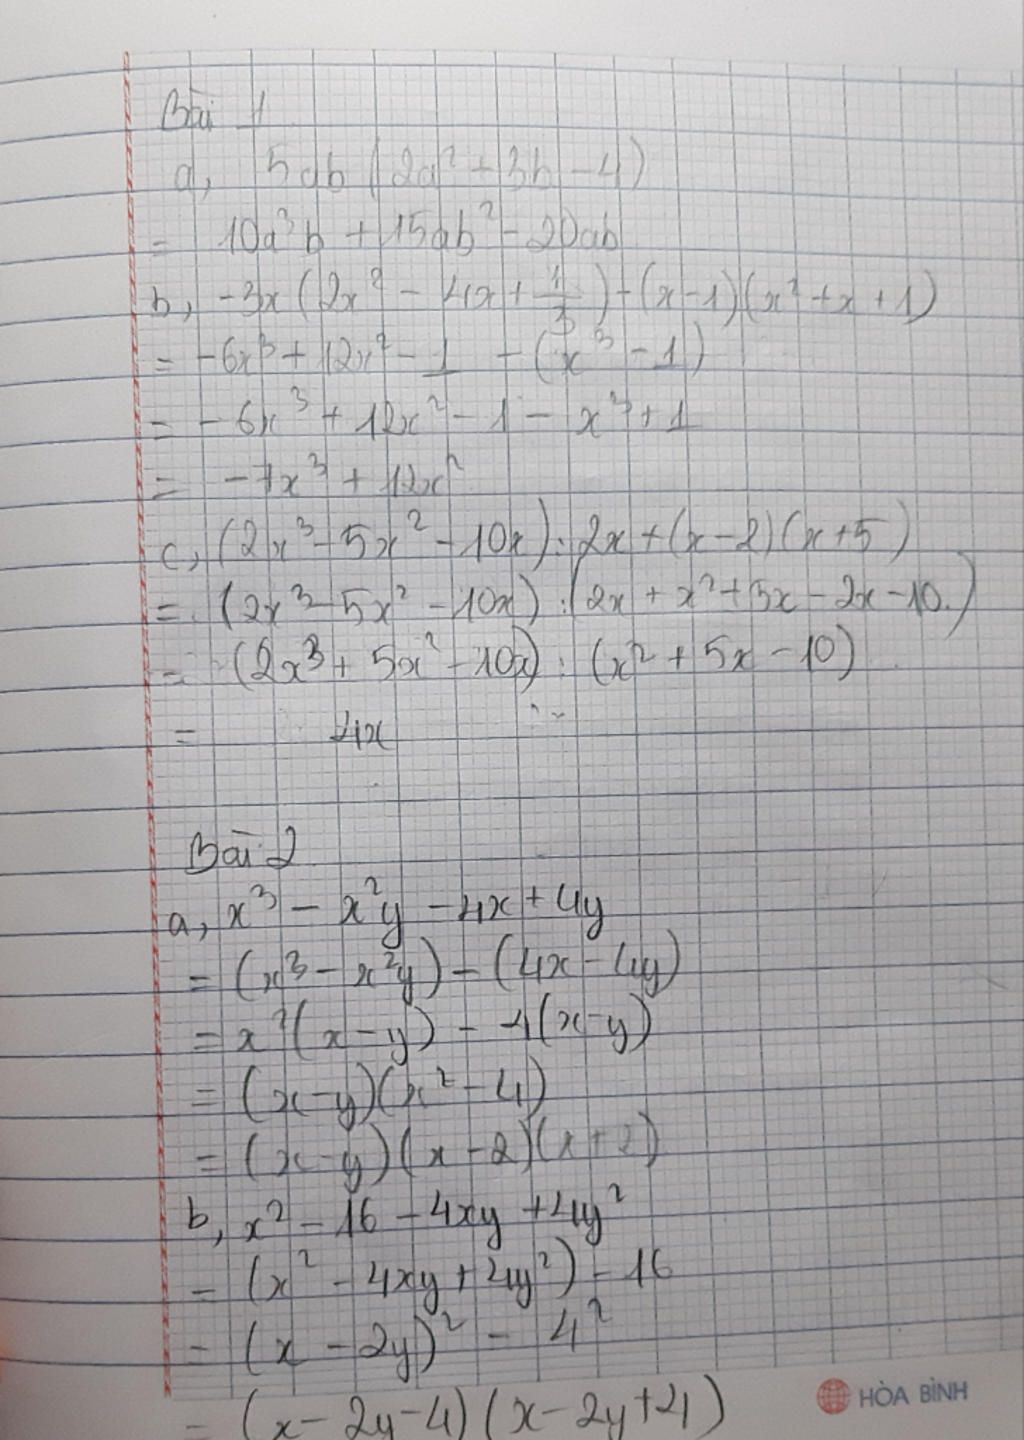 Bài 1
a, 5ab (2a² + 3b - 4)
= 10a³b + 15ab² - 20ab
b, -3x (2x² - 4x + 1/3) - (x - 1)(x² + x + 1)
= -6x³ + 12x² - 1 - (x³ - 1)
= - 6x³ + 12x² - 1 - x³ + 1
= - 7x³ + 12x²
c, (2x³ - 5x² - 10x) : 2x + (x - 2)(x + 5)
= (2x³ - 5x² - 10x) : (2x + x² + 5x - 2x - 10)
= (2x³ + 5x² - 10x) : (x² + 5x - 10)
= 4x
Bài 2
a, x³ - x²y - 4x + 4y
= (x³ - x²y) - (4x - 4y)
= x²(x - y) - 4(x - y)
= (x - y)(x² - 4)
= (x - y)(x - 2)(x + 2)
b, x² - 16 - 4xy + 4y²
= (x² - 4xy + 4y²) - 16
= (x - 2y)² - 4²
= (x - 2y - 4)(x - 2y + 4)
HÒA BÌNH